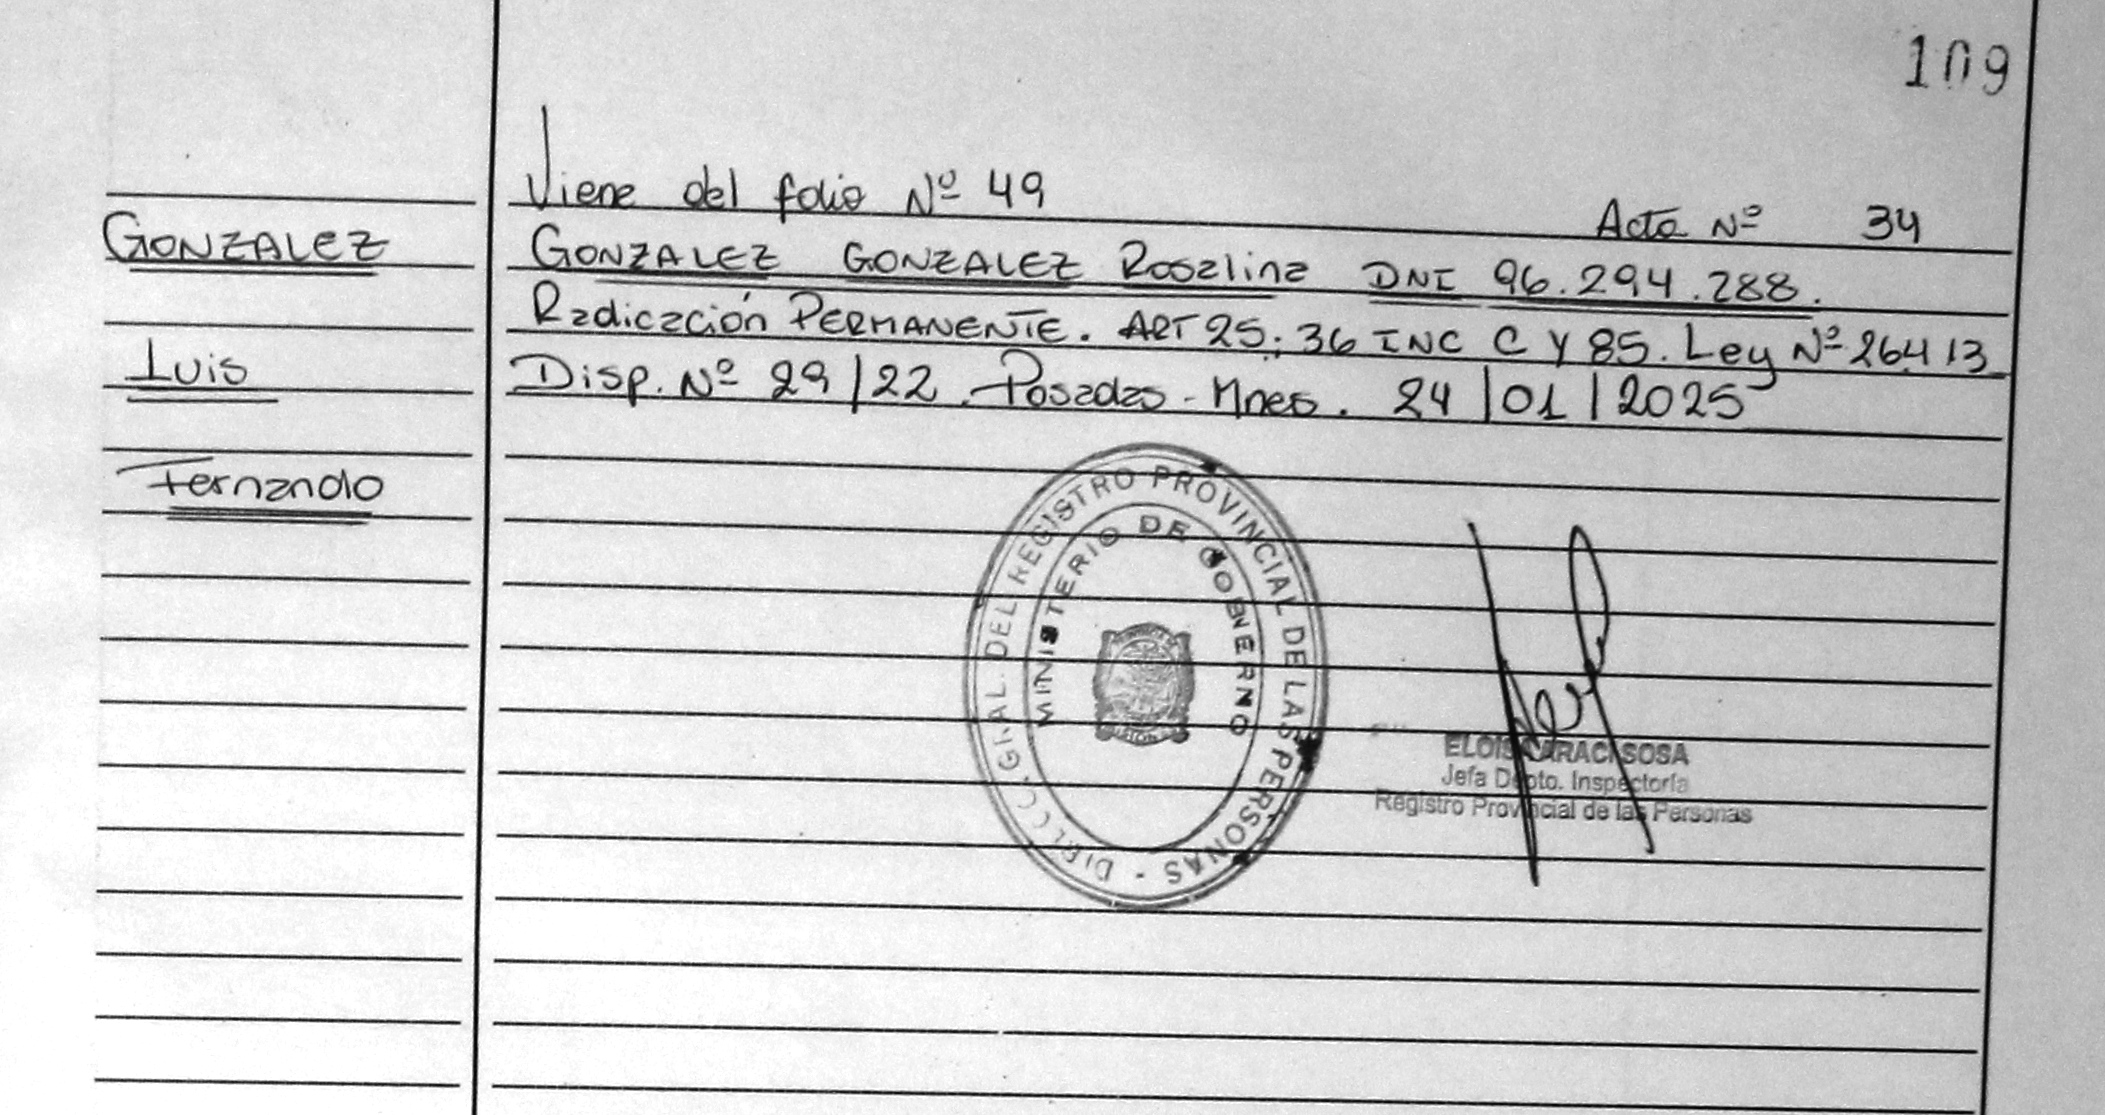 109
Viene del folio Nº 49
Acta Nº 34
GONZALEZ
Luis
Fernando
GONZALEZ GONZALEZ Rosalina DNI 96.294.288.
Radicación PERMANENTE. ART 25; 36 INC C Y 85. Ley Nº 26413
Disp. Nº 29/22. Posadas - Mnes. 24/01/2025
GRAL. DEL REGISTRO PROVINCIAL DE LAS PERSONAS -
MINISTERIO DE GOBIERNO
SOSA
Jefa Dpto. Inspectoría
Registro Provincial de las Personas